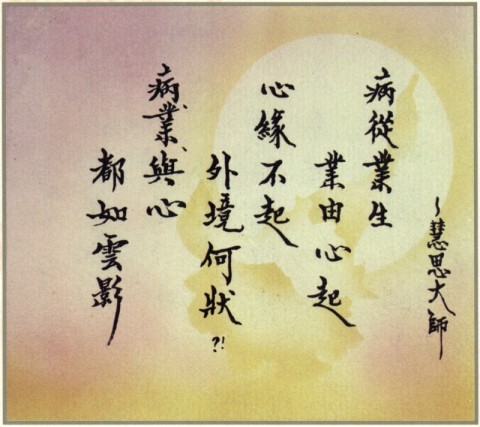 ～慧思大師
病從業生
業由心起
心緣不起
外境何狀?!
病業與心
都如雲影